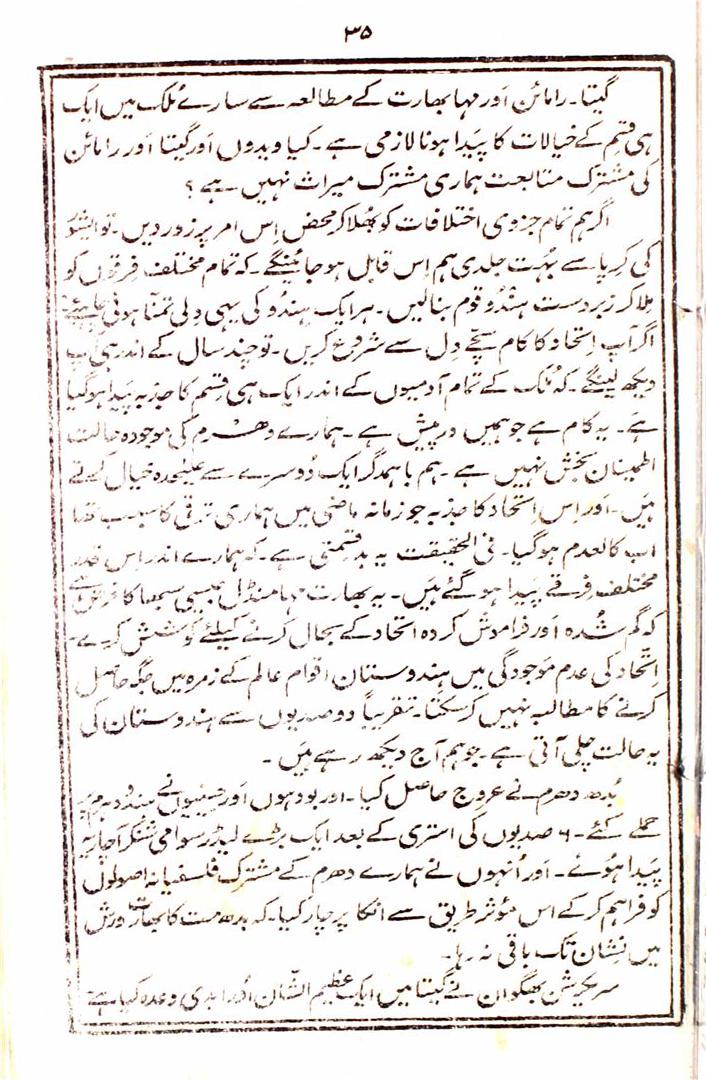 ۳۵
گیتا۔ رامائن اَور مہابھارت کے مطالعہ سے سارے مُلک میں ایک
ہی قِسم کے خیالات کا پَیدا ہونا لازمی ہے۔ کیا ویدوں اَور گیتا اَور رامائن
کی مشترک متابعت ہماری مشترک میراث نہیں ہے؟
اگر ہم تمام جزوی اختلافات کو بُھلا کر محض اِس امر پر زور دیں۔ تو ایشور
کی کرپا سے بہُت جلدی ہم اِس قابل ہو جائینگے۔ کہ تمام مختلف فِرقوں کو
مِلا کر زبردست ہِندُو قوم بنا لیں۔ ہر ایک ہِندُو کی یہی دِلی تمنّا ہونی چاہیئے
اگر آپ اِتحّاد کا کام سچّے دِل سے شروع کریں۔ تو چند سال کے اندر ہی آپ
دیکھ لینگے۔ کہ مُلک کے تمام آدمیوں کے اندر ایک ہی قِسم کا جذبہ پَیدا ہو گیا
ہے۔ یہ کام ہے جو ہمیں درپیش ہے۔ ہمارے دھرم کی موجودہ حالت
اطمینان بخش نہیں ہے۔ ہم باہمدگر ایک دُوسرے سے علیٰحدہ خیال کرتے
ہَیں۔ اور اِس اِتحّاد کا جذبہ جو زمانہ ماضی میں ہماری ترقی کا سبب تھا
اب کالعدم ہو گیا۔ فی الحقیقت یہ بدقِسمتی ہے۔ کہ ہمارے اندر اِس قدر
مختلف فِرقے پَیدا ہو گئے ہَیں۔ یہ بھارت مہامنڈل جیسی سبھا کا فرض ہے
کہ گم شُدہ اَور فراموش کردہ اتحاد کے بحال کرنے کیلئے کوشش کرے۔
اِتحّاد کی عدم موَجودگی میں ہِندوستان اقوام عالم کے زمرہ میں جگہ حاصل
کرنے کا مطالبہ نہیں کر سکتا۔ تقریباً دو صدیوں سے ہندوستان کی
یہ حالت چلی آتی ہے۔ جو ہم آج دیکھ رہے ہَیں۔
بُدھ دھرم نے عروج حاصل کیا۔ اور بودہوں اَور جینیوں نے ہندو دہرم پر
حملے کئے۔ ۶ صدیوں کی ابتری کے بعد ایک بڑے لیڈر سوامی شنکر آچاریہ
پَیدا ہُوئے۔ اور اُنہوں نے ہمارے دھرم کے مشترک فلسفیانہ اصولوں
کو فراہم کر کے اس مؤثر طریق سے اُنکا پرچار کیا۔ کہ بدھ مت کا بھارت ورش
میں نشان تک باقی نہ رہا۔
سری کرشن بھگوان نے گیتا میں ایک عظیم الشّان اَور ابدی وعدہ کیا ہے